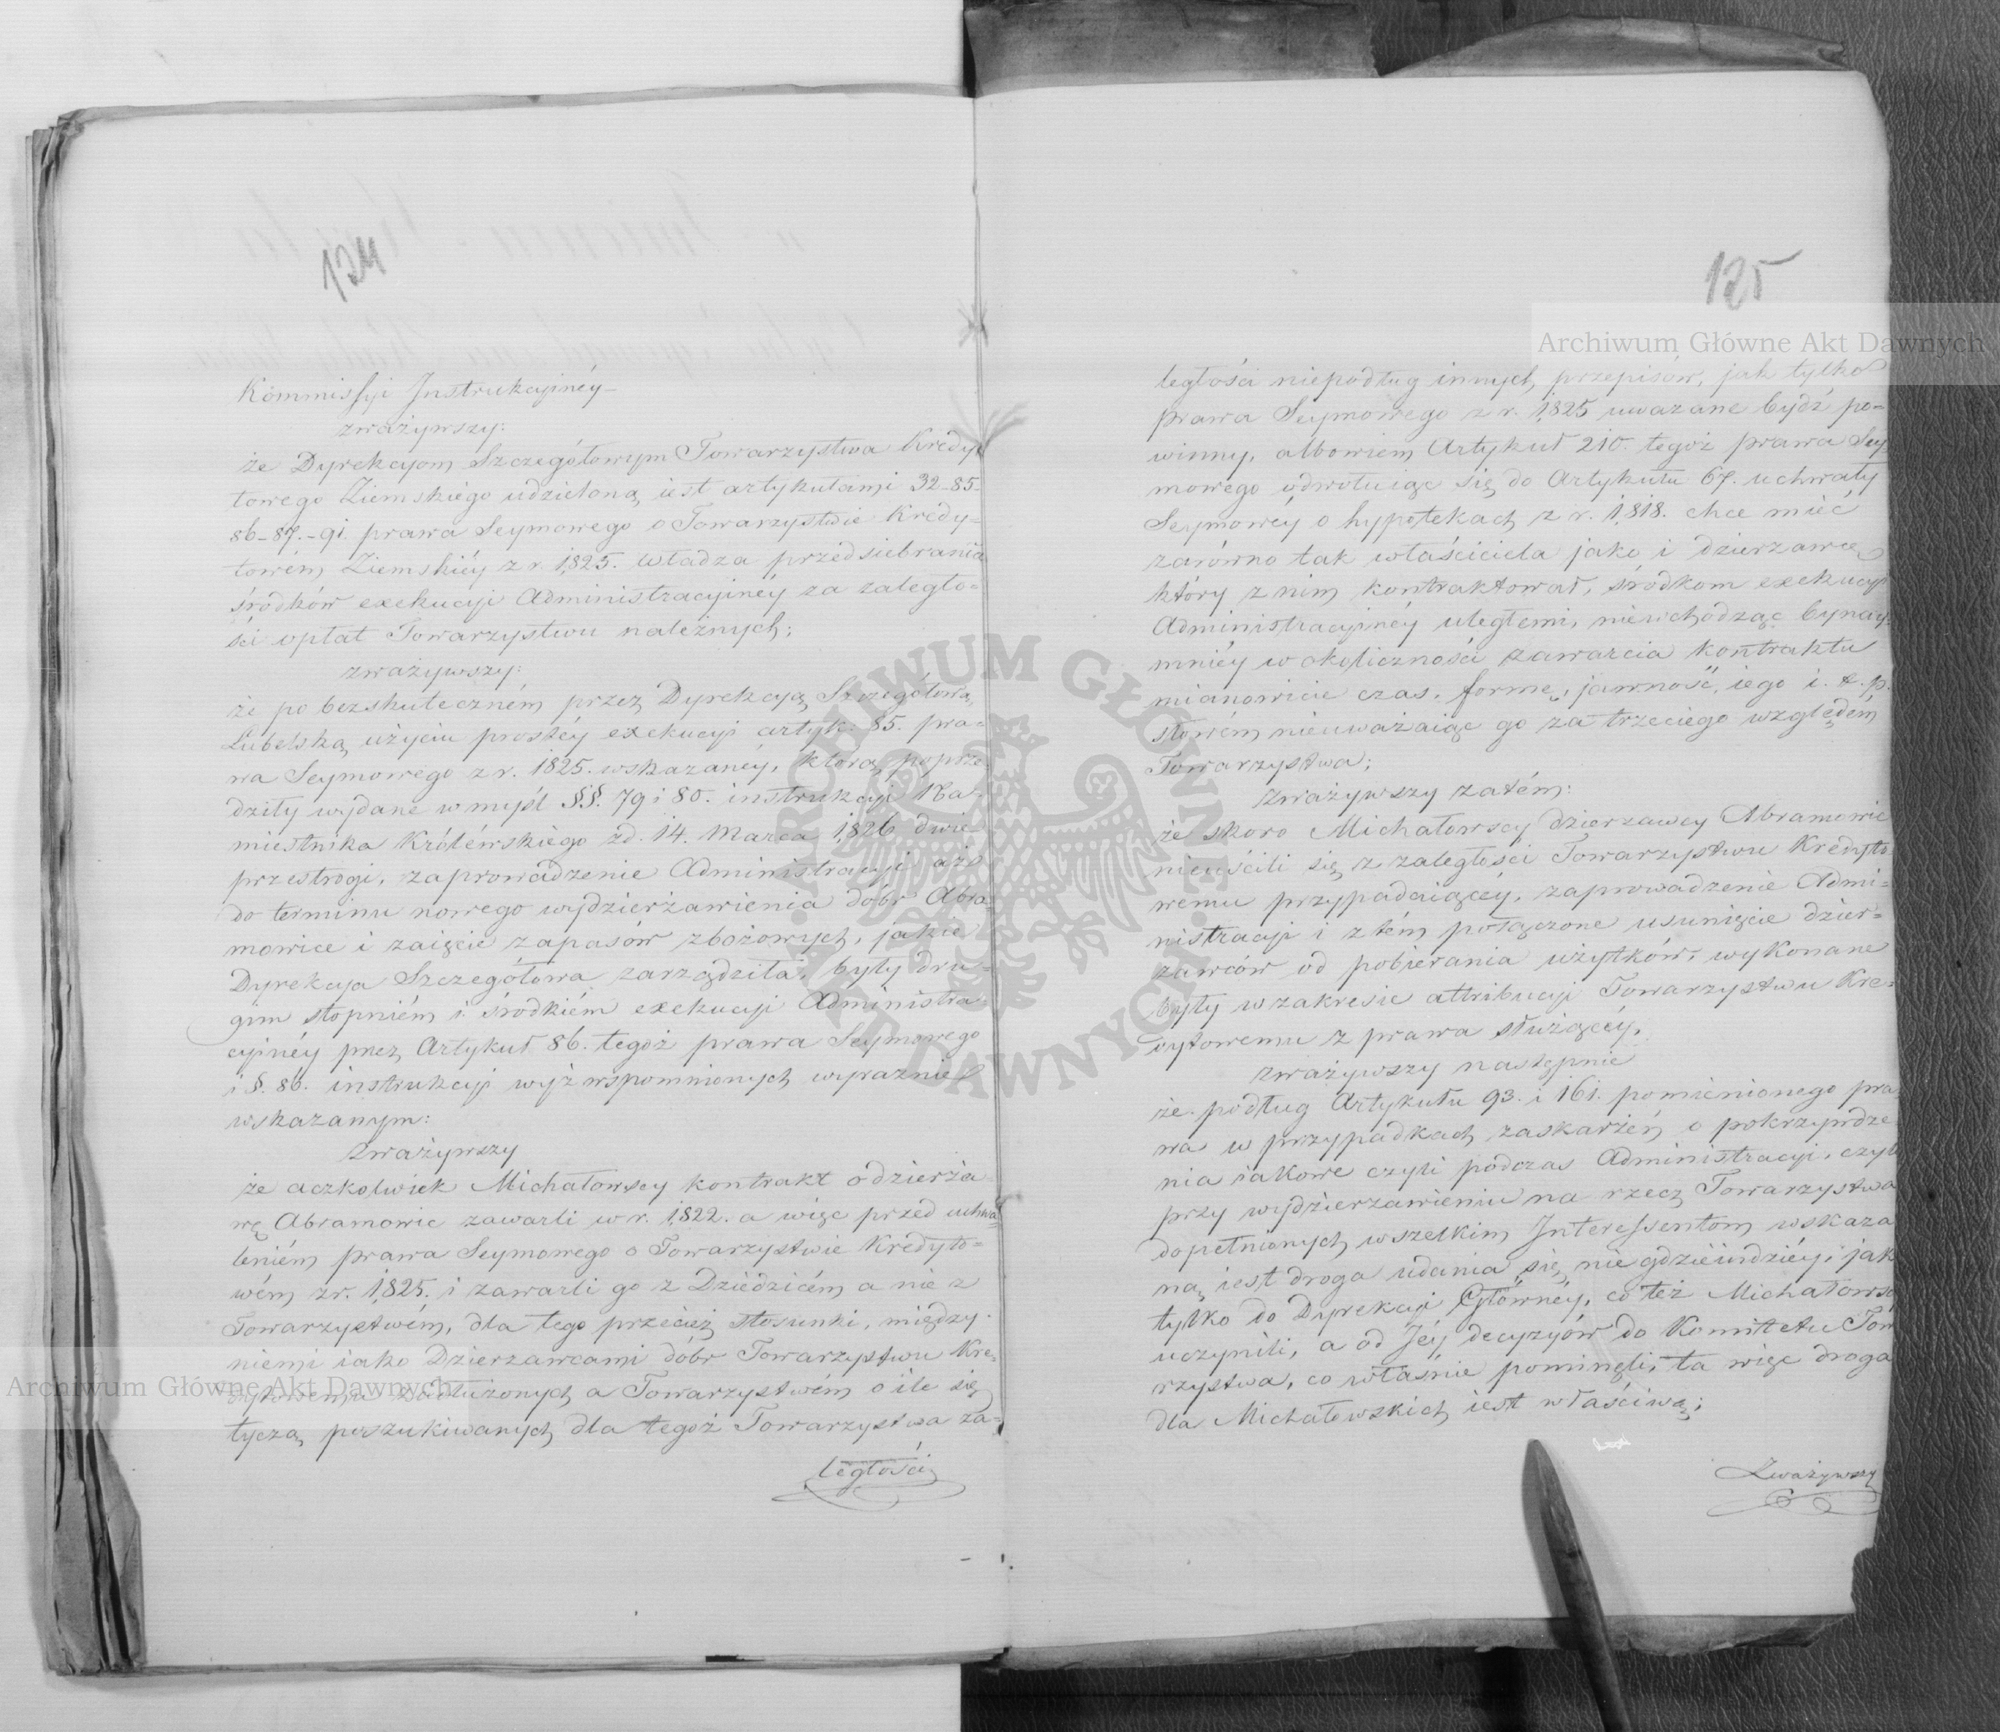 124
Kommissyi Instrukcyinéy
zważywszy:
że Dyrekcyom Szczegółowym Towarzystwa Kredy
towego Ziemskiégo udzieloną iest artykułami 32-85-
86-87.-91. prawa Seymowego o Towarzystwie Kredy=
towém Ziemskiéy z r. 1,825. władza przedsiebrania
śródków exekucyi Administracyinéy za zaległo=
ści opłat Towarzystwu należnych;
zważywszy:
że po bezskuteczném przez Dyrekcyą Szczegółową
Lubelską użyciu prostéy exekucyi artyk: 85. pra=
wa Seymowego z r. 1825. wskazanéy, którą poprze
dziły wydane w myśl §.§. 79 i 80. instrukcyi Na=
miestnika Królewskiégo zd. 14. Marca 1,826 dwie
przestrogi, zaprowadzenie Administracyi aż
do terminu nowego wydzierżawienia dóbr Abra
mowice i zaięcie zapasów zbożowych, jakie
Dyrekcya Szczegółowa zarządziła, były dru=
gim stopniém i środkiém exekucyi Administra=
cyinéy przez Artykuł 86. tegoż prawa Seymowego
i §. 86. instrukcyi wyż wspomnionych wyraznie
wskazanym:
Zważywszy
że aczkolwiek Michałowscy kontrakt o dzierża=
wę Abramowic zawarli w r. 1,822. a więc przed uchwa=
leniém prawa Seymowego o Towarzystwie Kredyto=
wém z r. 1,825. i zawarli go z Dziédzicém a nie z
Towarzystwém, dla tego przecież stosunki, między
niemi iako Dzierzawcami dóbr Towarzystwu Kre=
dytowemu zadłużonych a Towarzystwém o ile się
tyczą poszukiwanych dla tegoż Towarzystwa za=
ległości
125
ległości niepodług innych przepisów, jak tylko
prawa Seymowego z r. 1,825 uwazane bydź po=
winny, albowiem Artykuł 210. tegoż prawa Sey
mowego odwołuiąc się do Artykułu 67. uchwały
Seymowéy o hypotekach z r. 1,818. chce mieć
zarówno tak właściciela jako i dzierzawcę
który z nim kontraktował, śródkom exekucyi
Administracyinéy uległemi, niewchodząc bynay
mniéy w okoliczności zawarcia kontraktu
mianowicie czas, formę, jawność, iego i. t. p.
słowém nieuważaiąc go za trzeciego względem
Towarzystwa;
Zważywszy zatém:
że skoro Michałowscy dzierzawcy Abramowic
nieuiścili się z zaległości Towarzystwu Kredyto
wemu przypadaiącéy, zaprowadzenie Admi=
nistracyi i z tém połączone usunięcie dzier=
zawców od pobierania użytków, wykonane
były w zakresie attribucyi Towarzystwu Kre=
dytowemu z prawa służącéy,
Zważywszy następnie
że podług Artykułu 93. i 161. pomienionego pra
wa w przypadkach zaskarżéń o pokrzywdze
nia iakowe czyli podczas Administracyi, czyli
przy wydzierzawieniu na rzecz Towarzystwa
dopełnionych wszelkim Interessentom wskaza
ną iest droga udania się niegdzieindziéy, jak
tylko do Dyrekcyi Głównéy, co też Michałowscy
uczynili, a od Jéy decyzyów do Komitetu Tow
rzystwa, co właśnie pominęli, ta więc droga
dla Michałowskich iest właściwą;
Zważywszy
Archiwum Główne Akt Dawnych
Archiwum Główne Akt Dawnych
ARCHIWUM GŁÓWNE AKT DAWNYCH